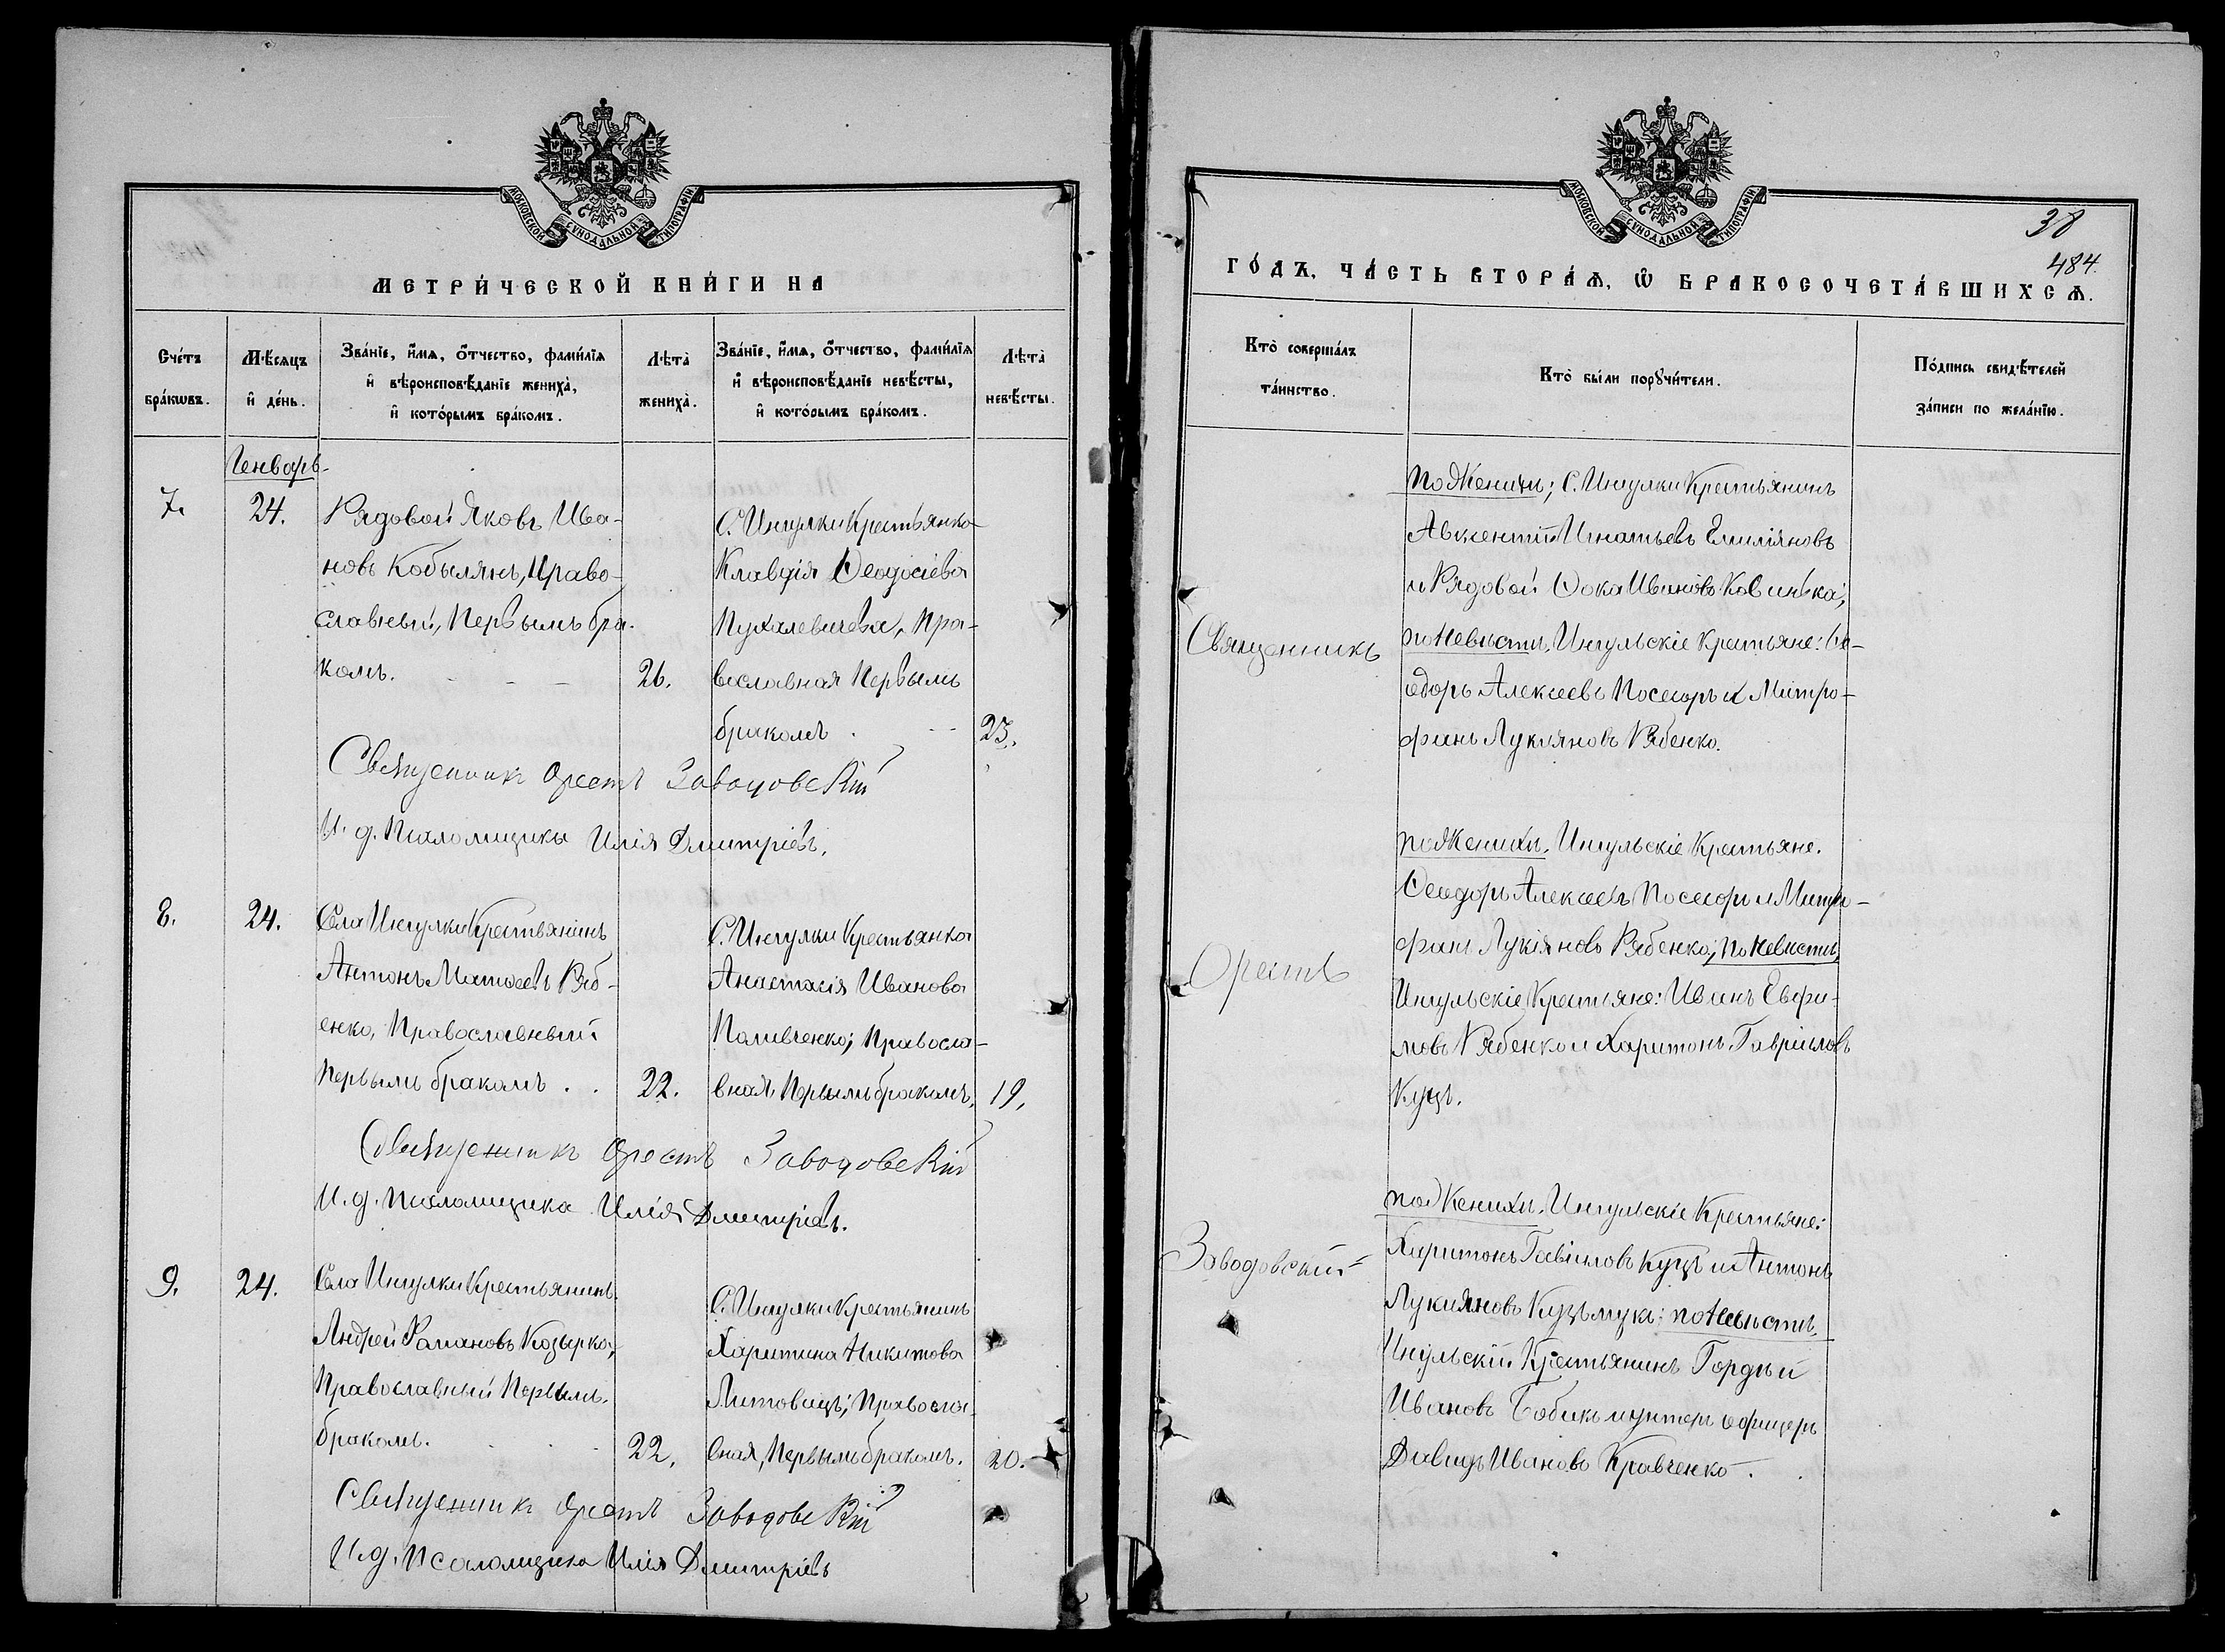 МОСКОВСКОЙ СѴНОДАЛЬНОЙ ТИПОГРАФІИ
МЕТРИ́ЧЕСКОЙ КНИ́ГИ НА
Сче́тъ бра́кѡвъ.
Мѣ́сяцъ и҆ де́нь.
Зва́нїе, и҆́мѧ, ѻ҆́тчество, фами́лїѧ и҆ вѣроисповѣ́данїе жениха̀, и҆ кото́рымъ бра́комъ.
Лѣ́та̀ жениха̀.
Зва́нїе, и҆́мѧ, ѻ҆́тчество, фами́лїѧ и҆ вѣроисповѣ́данїе невѣ́сты, и҆ кото́рымъ бра́комъ.
Лѣ́та̀ невѣ́сты.
Генварь
7.
24.
Рядовой Яковъ Ива-
новъ Кобылянъ, Право-
славный, Первымъ бра-
комъ.
26.
С. Ингулки Крестьянка
Клавдія Ѳеодосіева
Пухалевичева, Пра-
вославная Первымъ
бракомъ
23.
Священникъ Орестъ Заводовскій
И. д. Псаломщика Илія Дмитріевъ.
8.
24.
Села Ингулки Крестьянинъ
Антонъ Матѳеевъ Ряб-
енко, Православный
Первымъ бракомъ
22.
С. Ингулки Крестьянка
Анастасія Иванова
Поливченко; Правосла-
вная, Первымъ бракомъ,
19.
Священникъ Орестъ Заводовскій
И. д. Псаломщика Илія Дмитріевъ.
9.
24.
Села Ингулки Крестьянинъ
Андрей Романовъ Козырко,
Православный Первымъ
бракомъ.
22.
С. Ингулки Крестьянинъ
Харитина Никитова
Литовицъ; Правосла-
вная, Первымъ бракомъ.
20.
Священникъ Орестъ Заводовскій
И. д. Псаломщика Илія Дмитріевъ
МОСКОВСКОЙ СѴНОДАЛЬНОЙ ТИПОГРАФІИ
38
484.
ГО́ДЪ, ЧА́СТЬ ВТОРА́Ѧ, Ѽ БРАКОСОЧЕТА́ВШИХСѦ.
Кто̀ соверша́лъ та́инство.
Кто̀ бы́ли порꙋчи́тели.
По́дпись свидѣ́телей за́писи по жела́нїю.
Священникъ
Орестъ
Заводовскій
по Женихѣ; С. Ингулки Крестьянинъ
Авксентій Игнатьевъ Емиліяновъ
и Рядовой Ѳока Ивановъ Ковинька;
по Невѣстѣ, Ингульскіе Крестьяне: Ѳе-
одоръ Алексеевъ Посесоръ и Митро-
фанъ Лукияновъ Рябенко.
по Женихѣ. Ингульскіе Крестьяне.
Ѳеодоръ Алексеевъ Посесоръ и Митро-
фанъ Лукіяновъ Рябенко; по Невѣстѣ,
Ингульскіе Крестьяне: Иванъ Евфи-
мовъ Рябенко и Харитонъ Гавріиловъ
Куцъ.
по Женихѣ. Ингульскіе Крестьяне:
Харитонъ Гавіиловъ Куцъ и Антонъ
Лукияновъ Кузьмукъ: по Невѣстѣ,
Ингульскій Крестьянинъ Гордѣй
Ивановъ Бобикъ и унтеръ офицеръ
Давидъ Ивановъ Кравченко.